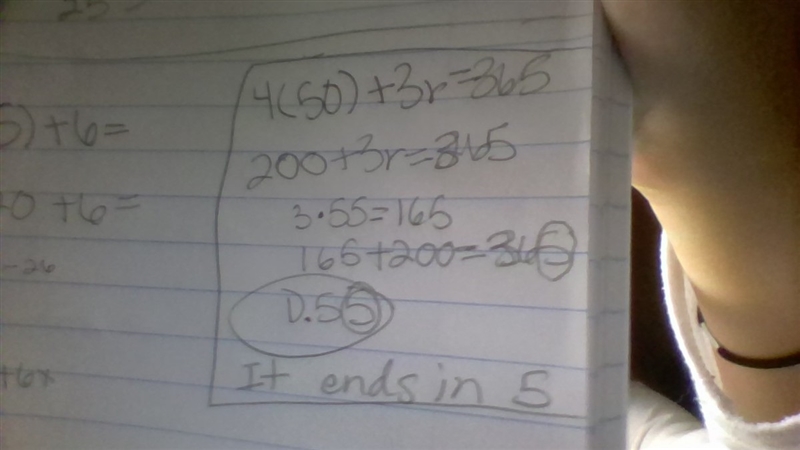 25
5) + 6 =
0 + 6 =
- 26
+6x
4(50) + 3r = 365
200 + 3r = 365
3 · 55 = 165
165 + 200 = 365
D. 55
It ends in 5